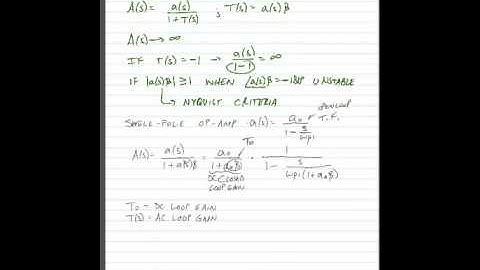 A(s) = a(s) / 1 + T(s) ; T(s) = a(s)β
A(s) → ∞
IF T(s) = -1 → a(s) / 1-1 = ∞
IF |a(s)β| ≥ 1 WHEN ∠a(s)β = -180 UNSTABLE
↳ NYQUIST CRITERIA
OPEN LOOP T.F.
SINGLE-POLE OP-AMP a(s) = a₀ / 1 - s/ωp1
T₀
A(s) = a(s) / 1 + a(s)β = a₀ / 1 + a₀β · 1 / 1 - s/ωp1(1 + a₀β)
DC CLOSED
LOOP GAIN
T₀ = DC LOOP GAIN
T(s) = AC LOOP GAIN